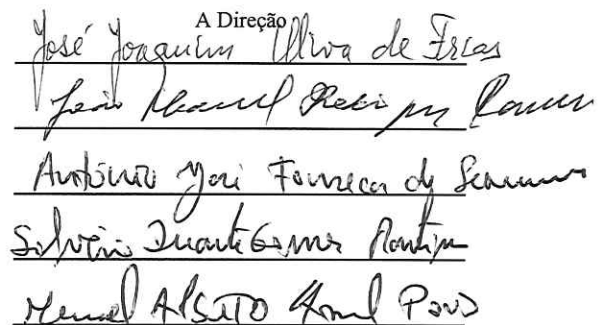 A Direção
José Joaquim Oliva de Frias
João Manuel
António José Fonseca de
Silvério Duarte Gomes Martins
Manuel Alberto